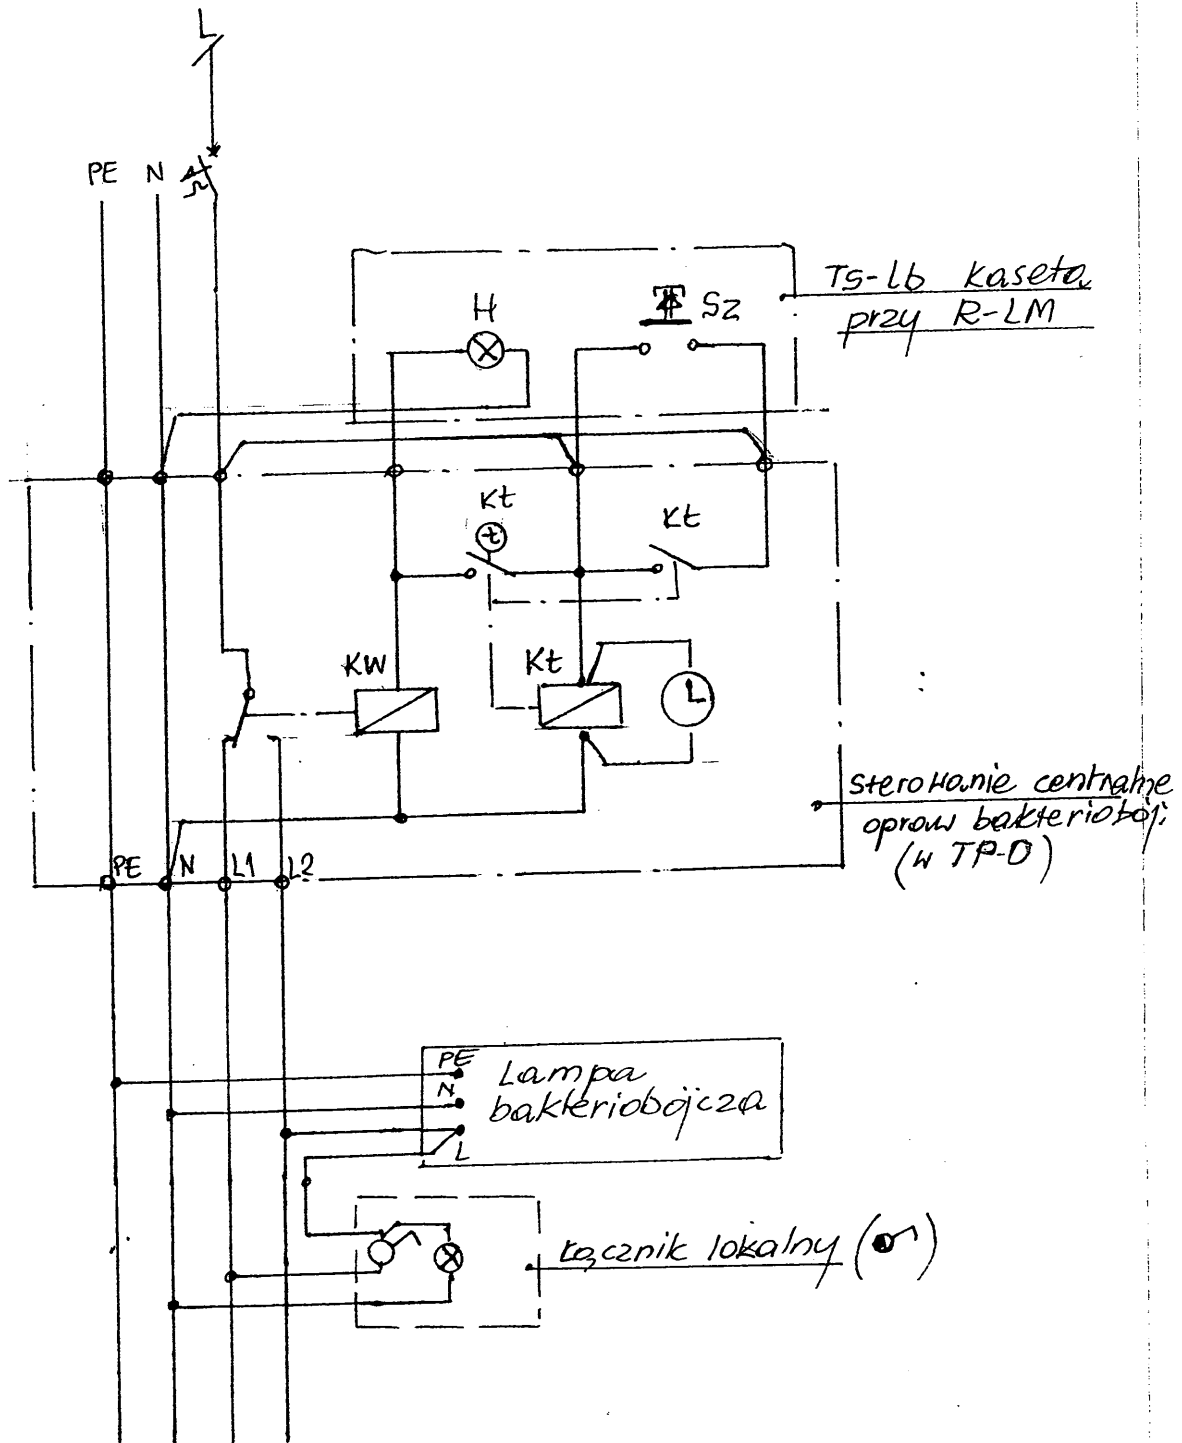 L
PE N
TS-Lb Kaseta
przy R-LM
H
Sz
Kt
t
Kt
KW
Kt
sterowanie centralne
opraw bakteriobój.
(w TP-D)
PE N L1 L2
PE
N
L
Lampa
bakteriobójcza
Łącznik lokalny